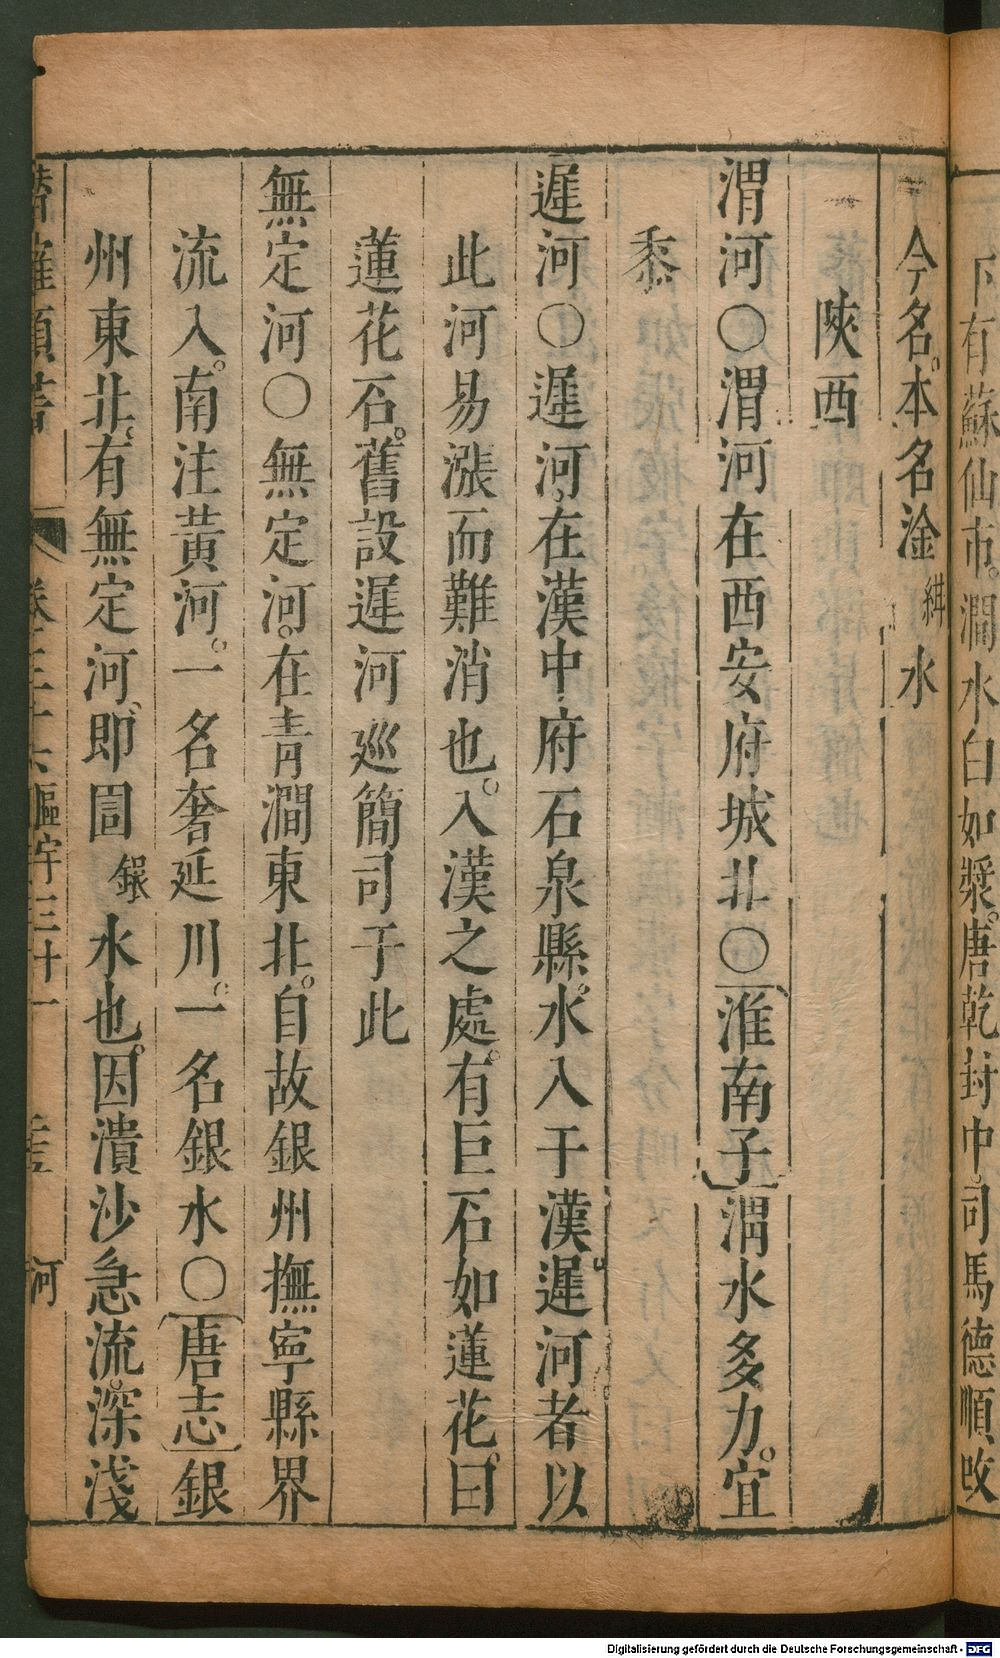 下有蘇仙市。澗水白如漿。唐乾封中司馬德順改
今名。本名淦紺水
陝西
渭河○渭河在西安府城北○淮南子渭水多力。宜
黍
遲河○遲河。在漢中府石泉縣。水入于漢。遲河者以
此河易漲而難消也。入漢之處。有巨石如蓮花。曰
蓮花石。舊設遲河巡簡司于此
無定河○無定河。在青澗東北。自故銀州撫寧縣界
流入。南注黃河。一名奢延川。一名銀水○唐志銀
州東北。有無定河。即圁銀水也。因潰沙急流。深淺
潛確類書
卷三十六區宇三十一
河
Digitalisierung gefördert durch die Deutsche Forschungsgemeinschaft - DFG